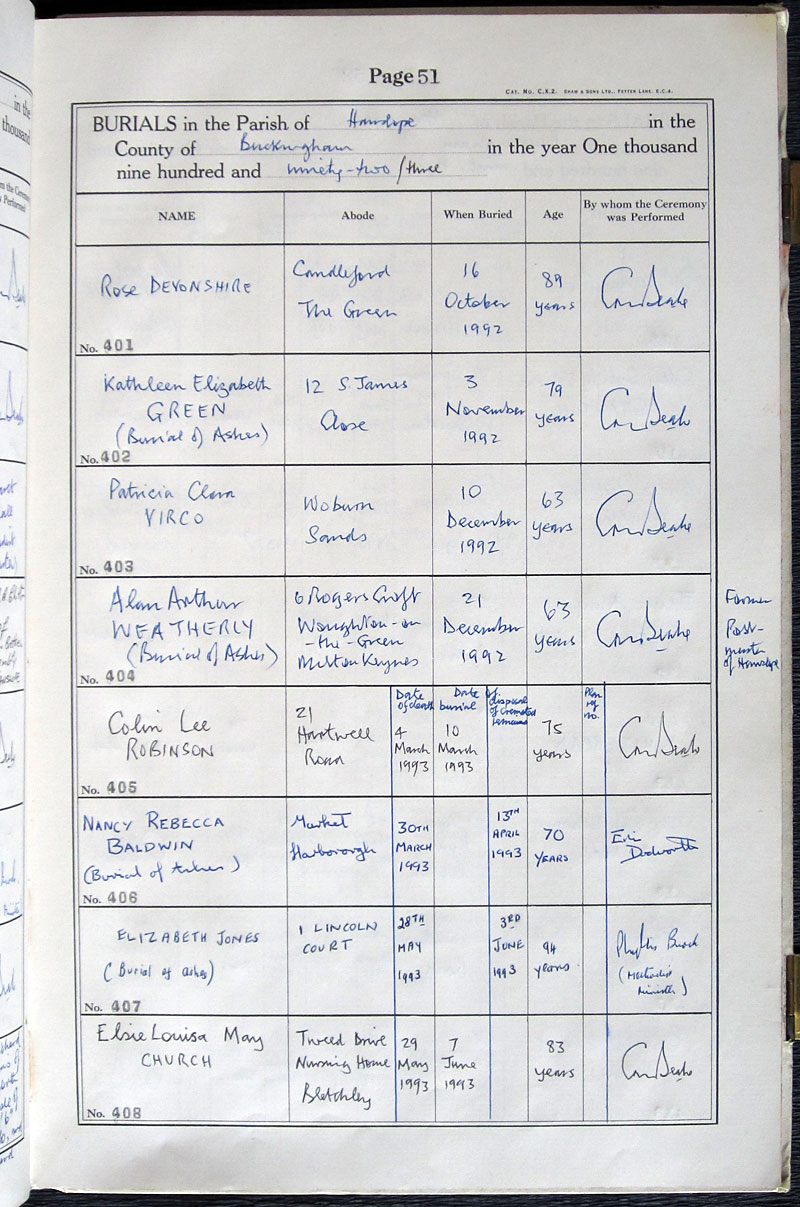 Page 51
CAT. No. C.X.2. SHAW & SONS LTD., FETTER LANE, E.C.4.
BURIALS in the Parish of Hanslope in the
County of Buckingham in the year One thousand
nine hundred and ninety-two / three
NAME Abode When Buried Age By whom the Ceremony was Performed
Rose DEVONSHIRE
No. 401
Candleford
The Green
16
October
1992
89
years
Kathleen Elizabeth
GREEN
(Burial of Ashes)
No. 402
12 S. James
Close
3
November
1992
79
years
Patricia Clara
VIRCO
No. 403
Woburn
Sands
10
December
1992
63
years
Alan Arthur
WEATHERLY
(Burial of Ashes)
No. 404
6 Rogers Croft
Woughton-on
-the-Green
Milton Keynes
21
December
1992
63
years
Former
Post-
master
of Hanslope
Colin Lee
ROBINSON
No. 405
21
Hartwell
Road
Date
of death
4
March
1993
Date
burial
10
March
1993
of
disposal
of Cremated
remains
75
years
Plan
ref
no.
NANCY REBECCA
BALDWIN
(Burial of Ashes)
No. 406
Market
Harborough
30TH
MARCH
1993
13TH
APRIL
1993
70
YEARS
ELIZABETH JONES
(Burial of Ashes)
No. 407
1 LINCOLN
COURT
28TH
MAY
1993
3RD
JUNE
1993
94
years
Phyllis
(Methodist
Minister)
Elsie Louisa May
CHURCH
No. 408
Tweed Drive
Nursing Home
Bletchley
29
May
1993
7
June
1993
83
years